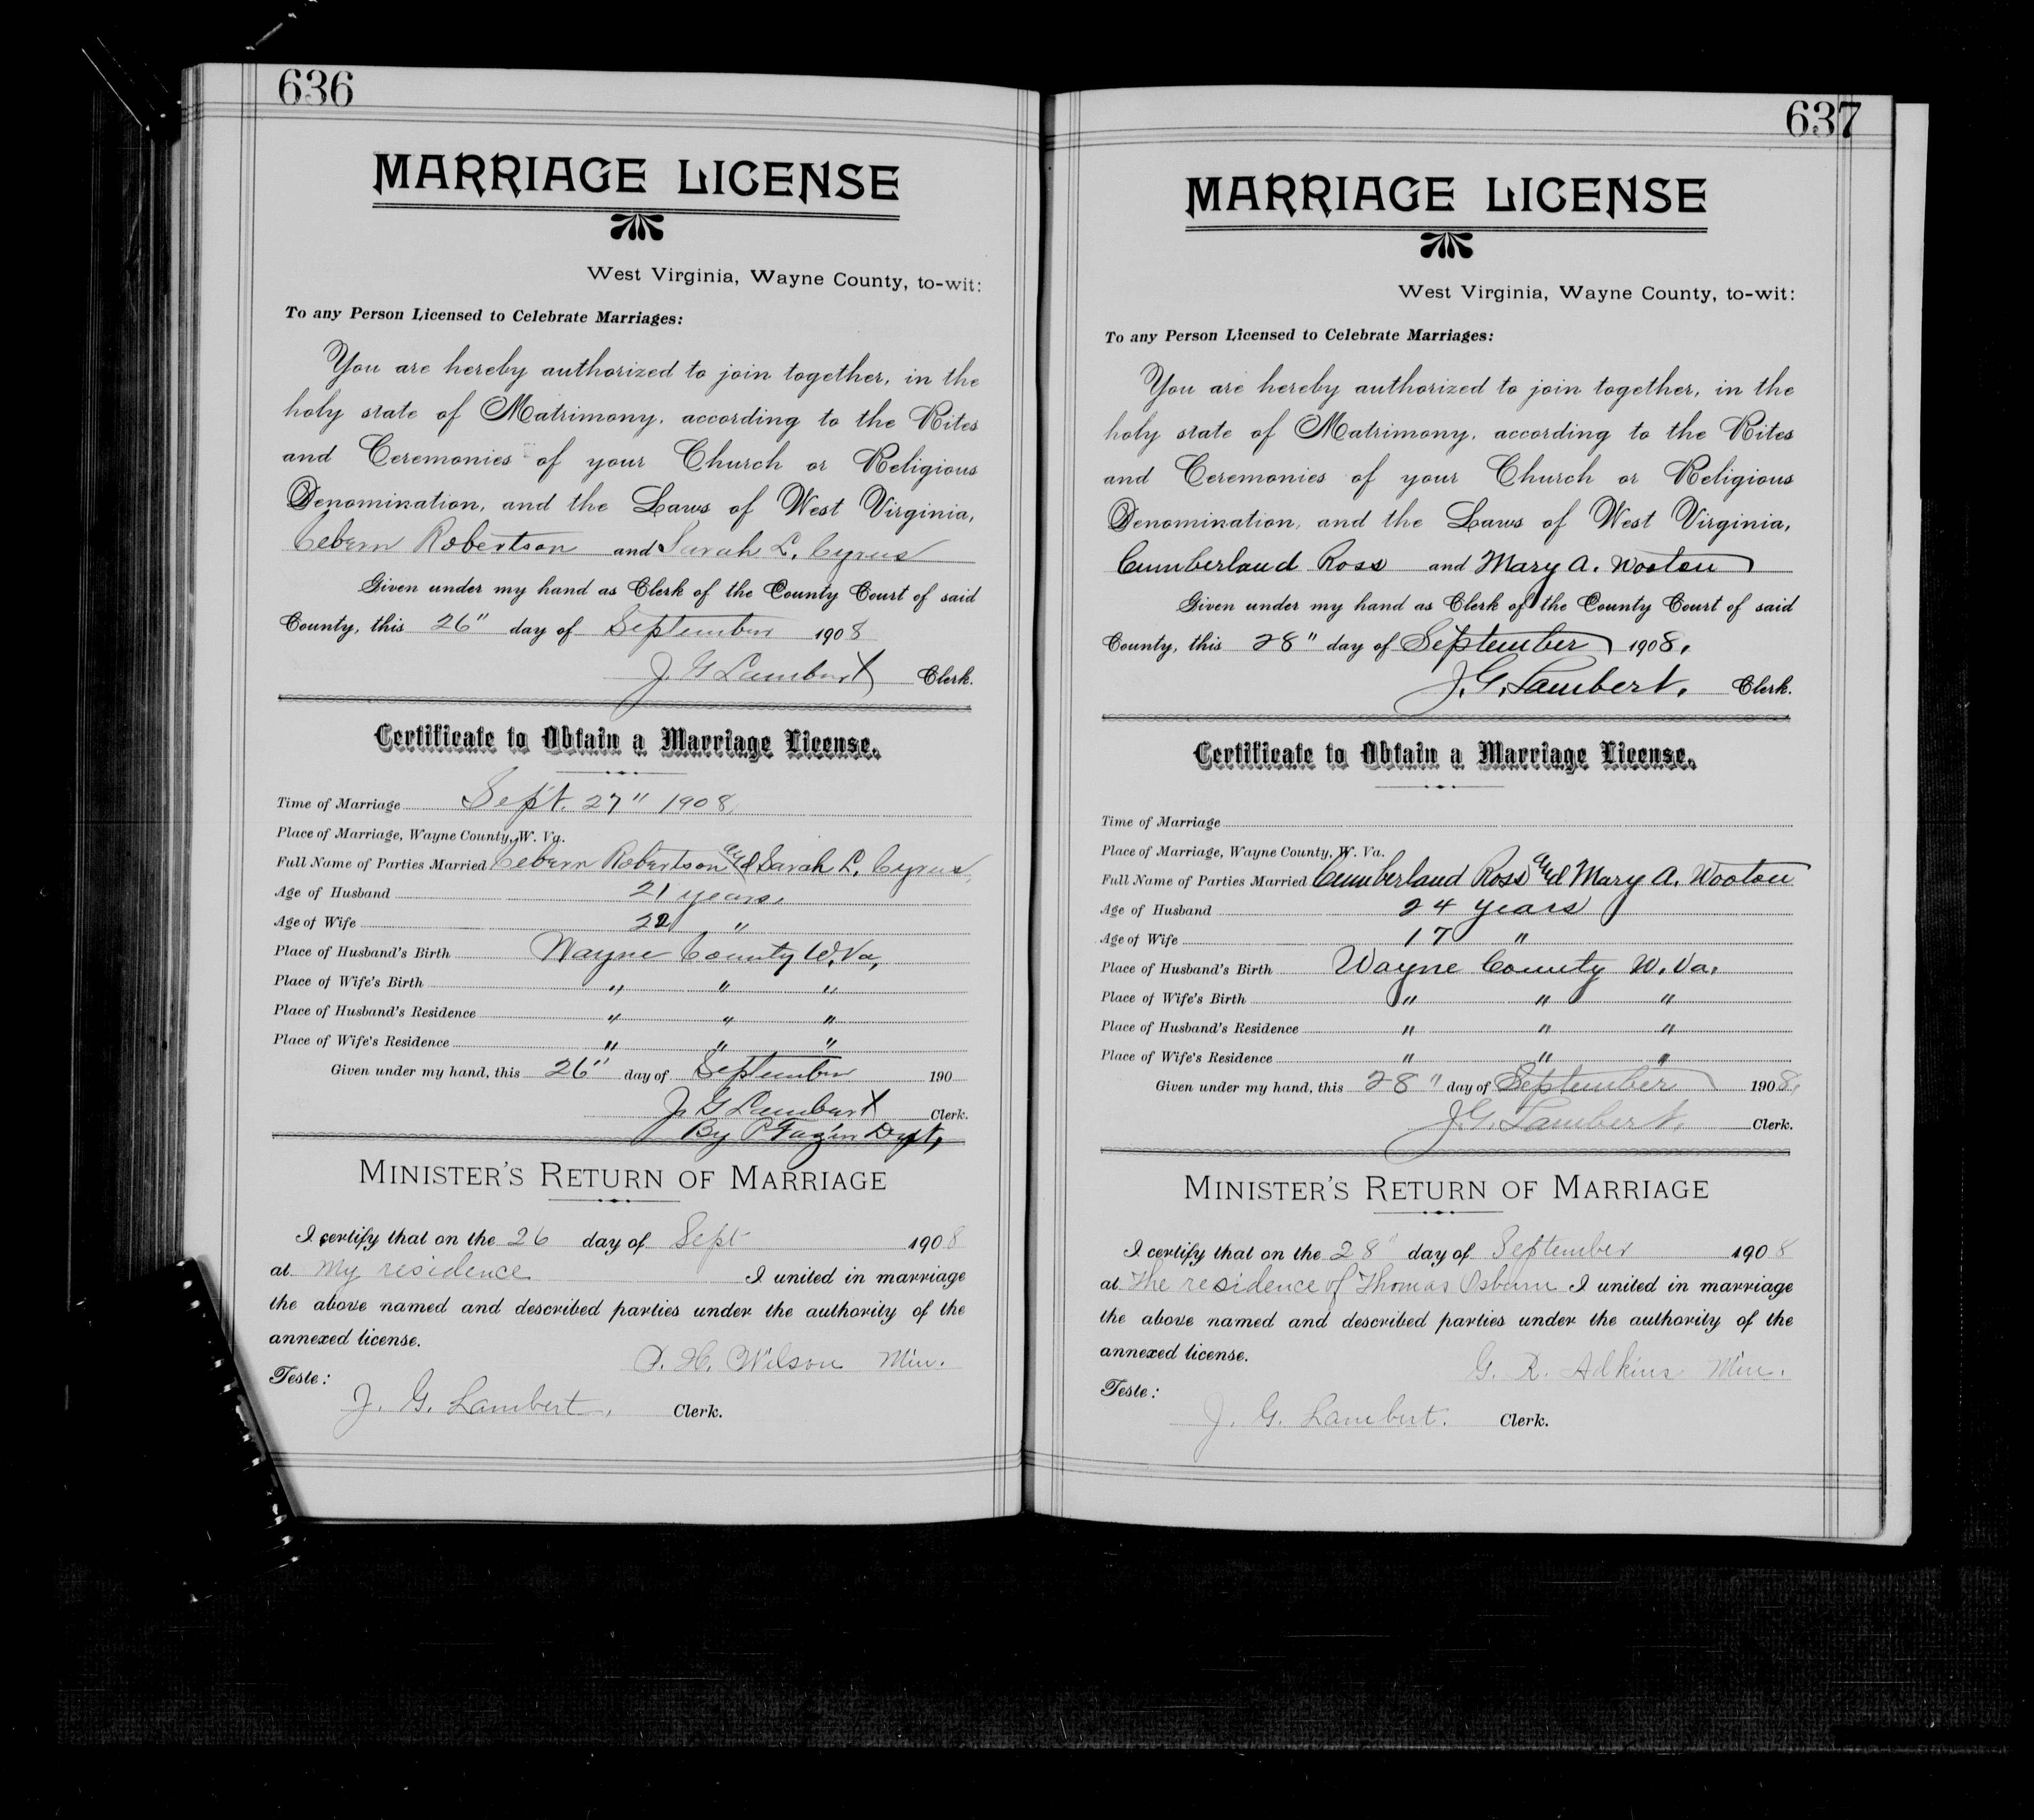 636
MARRIAGE LICENSE
West Virginia, Wayne County, to-wit:
To any Person Licensed to Celebrate Marriages:
You are hereby authorized to join together, in the
holy state of Matrimony, according to the Rites
and Ceremonies of your Church or Religious
Denomination, and the Laws of West Virginia,
Cebern Robertson and Sarah L. Cyrus
Given under my hand as Clerk of the County Court of said
County, this 26" day of September 1908
J. G Lambert Clerk.
Certificate to Obtain a Marriage License.
Time of Marriage Sept. 27" 1908
Place of Marriage, Wayne County, W. Va.
Full Name of Parties Married Cebern Robertson and Sarah L. Cyrus
Age of Husband 21 years.
Age of Wife 22 "
Place of Husband's Birth Wayne County W. Va,
Place of Wife's Birth " " "
Place of Husband's Residence " " "
Place of Wife's Residence " " "
Given under my hand, this 26" day of September 190
J. G Lambert Clerk.
By Dept,
MINISTER'S RETURN OF MARRIAGE
I certify that on the 26 day of Sept 1908
at My residence I united in marriage
the above named and described parties under the authority of the
annexed license.
H. Wilson Min.
Teste:
J. G. Lambert, Clerk.
637
MARRIAGE LICENSE
West Virginia, Wayne County, to-wit:
To any Person Licensed to Celebrate Marriages:
You are hereby authorized to join together, in the
holy state of Matrimony, according to the Rites
and Ceremonies of your Church or Religious
Denomination, and the Laws of West Virginia,
Cumberland Ross and Mary A. Wooton
Given under my hand as Clerk of the County Court of said
County, this 28" day of September 1908.
J. G. Lambert. Clerk.
Certificate to Obtain a Marriage License.
Time of Marriage
Place of Marriage, Wayne County, W. Va.
Full Name of Parties Married Cumberland Ross and Mary A. Wooton
Age of Husband 24 years
Age of Wife 17 "
Place of Husband's Birth Wayne County W. Va.
Place of Wife's Birth " " "
Place of Husband's Residence " " "
Place of Wife's Residence " " "
Given under my hand, this 28" day of September 1908,
J. G. Lambert. Clerk.
MINISTER'S RETURN OF MARRIAGE
I certify that on the 28" day of September 1908
at The residence of Thomas Osburn I united in marriage
the above named and described parties under the authority of the
annexed license.
G. R. Adkins Min.
Teste:
J. G. Lambert. Clerk.